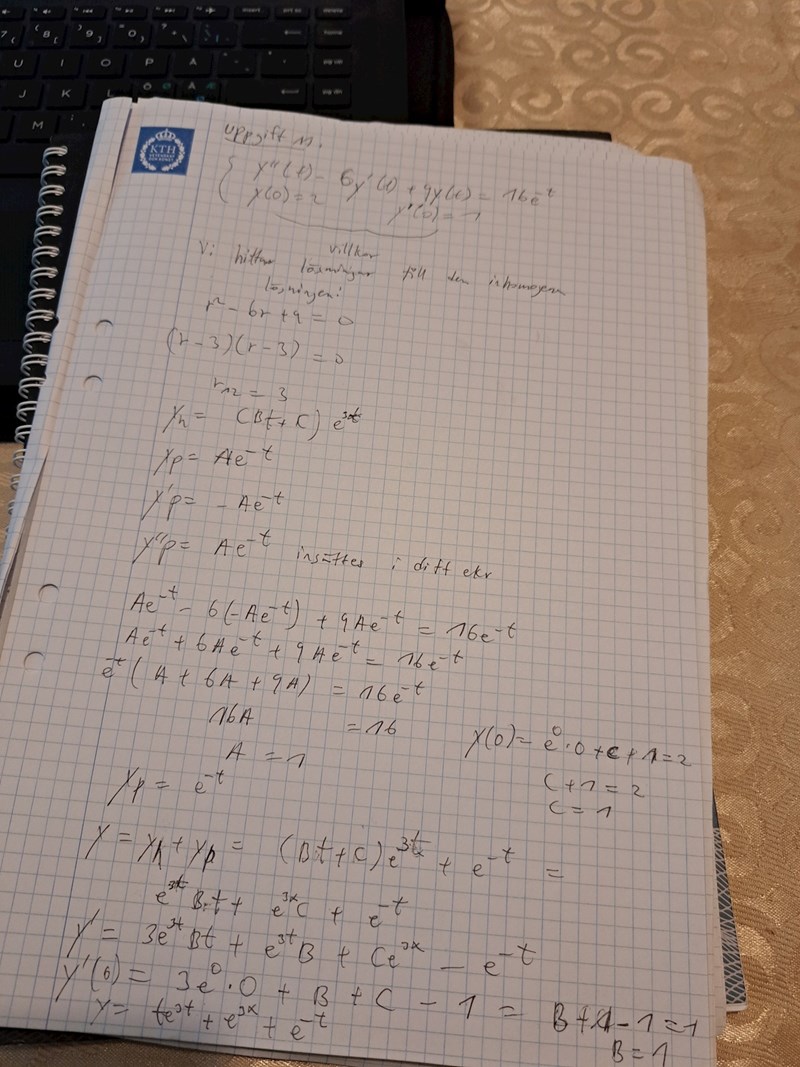 KTH
uppgift 11.
y''(t) - 6y'(t) + 9y(t) = 16e^-t
y(0) = 2 y'(0) = 1
villkor
Vi hittar lösningar till den inhomogena
lösningen:
r² - 6r + 9 = 0
(r-3)(r-3) = 0
r12 = 3
yh = (Bt+C) e^3t
yp = Ae^-t
y'p = -Ae^-t
y''p = Ae^-t insättes i diff ekv
Ae^-t - 6(-Ae^-t) + 9Ae^-t = 16e^-t
Ae^-t + 6Ae^-t + 9Ae^-t = 16e^-t
e^-t (A + 6A + 9A) = 16e^-t
16A = 16
A = 1
yp = e^-t
y(0) = e^0·0 + C + 1 = 2
C + 1 = 2
C = 1
y = yh + yp = (Bt+C)e^3t + e^-t =
e^3t Bt + e^3x C + e^-t
y' = 3e^3t Bt + e^3t B + Ce^3x - e^-t
y'(0) = 3e^0·0 + B + C - 1 = B + 1 - 1 = 1
B = 1
y = te^3t + e^3x + e^-t